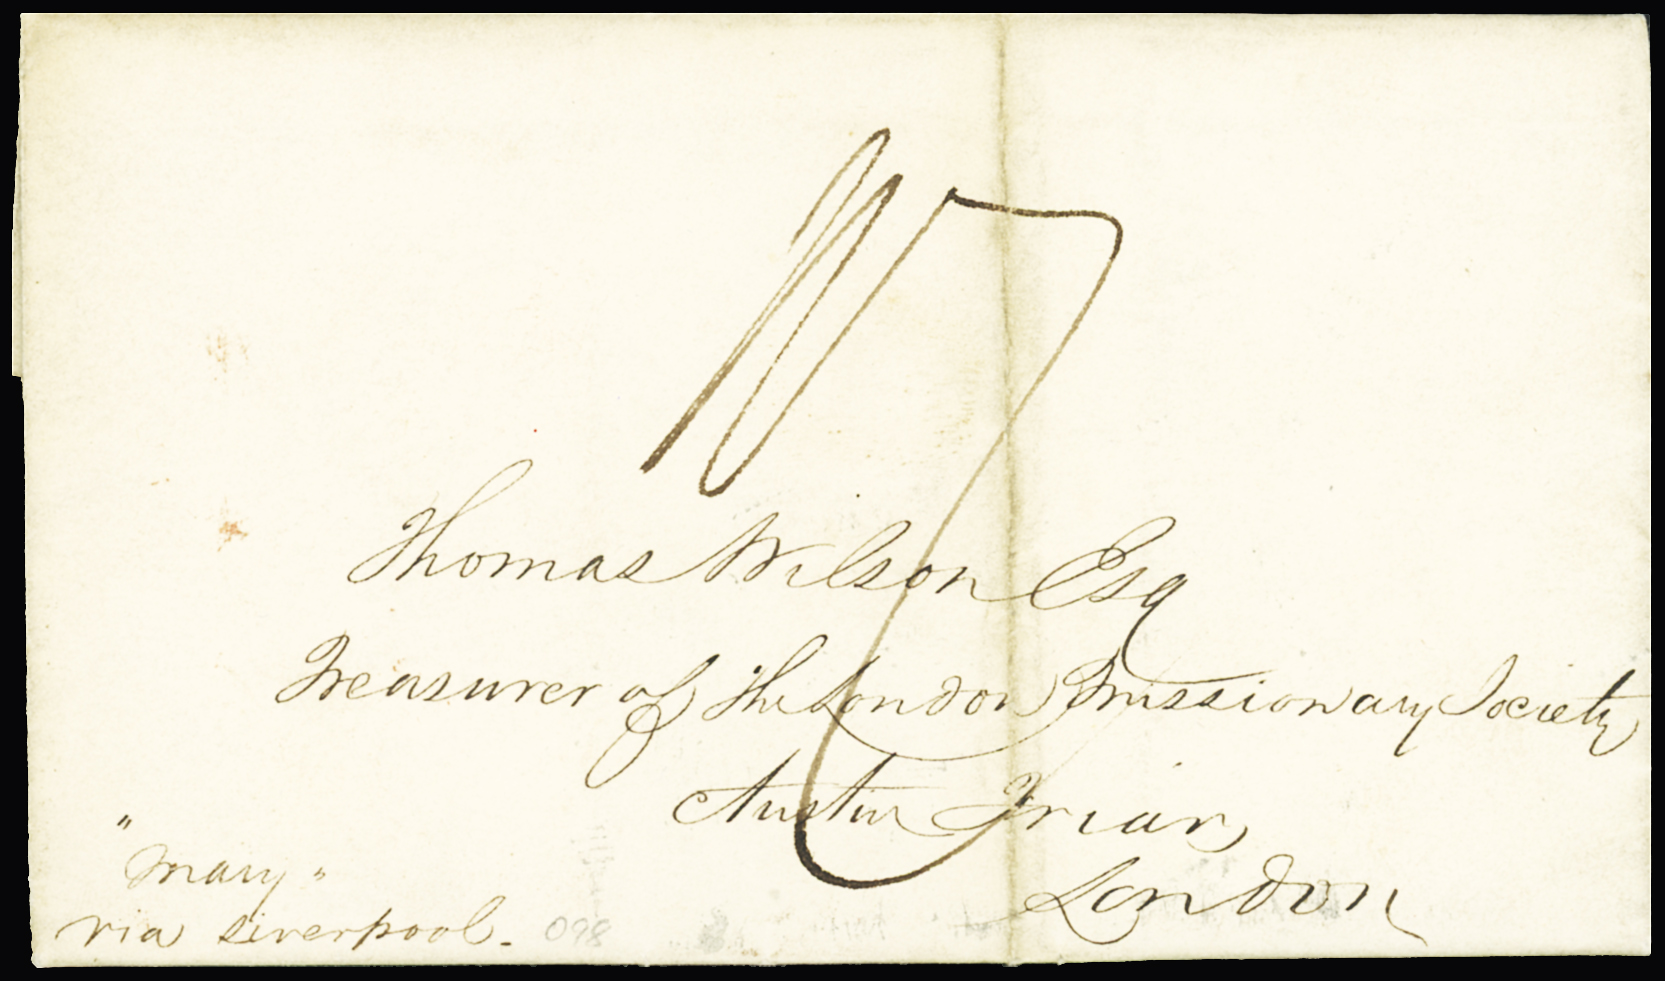 Thomas Wilson Esq
Treasurer of the London Missionary Society
Austin Friars
London
"Mary"
via Liverpool.
098